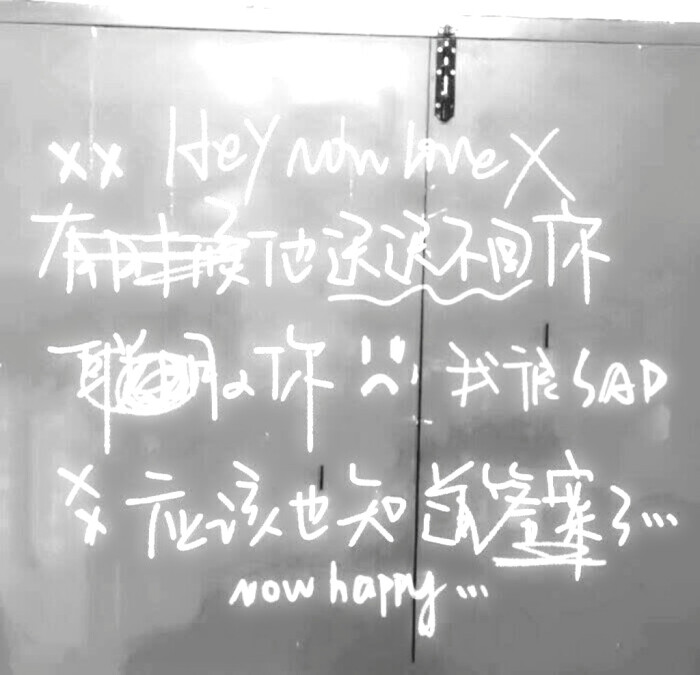 xx Hey now love X
有他送送不回你
聪明如你 :( 我很SAD
xx 应该也知道答案了...
now happy...